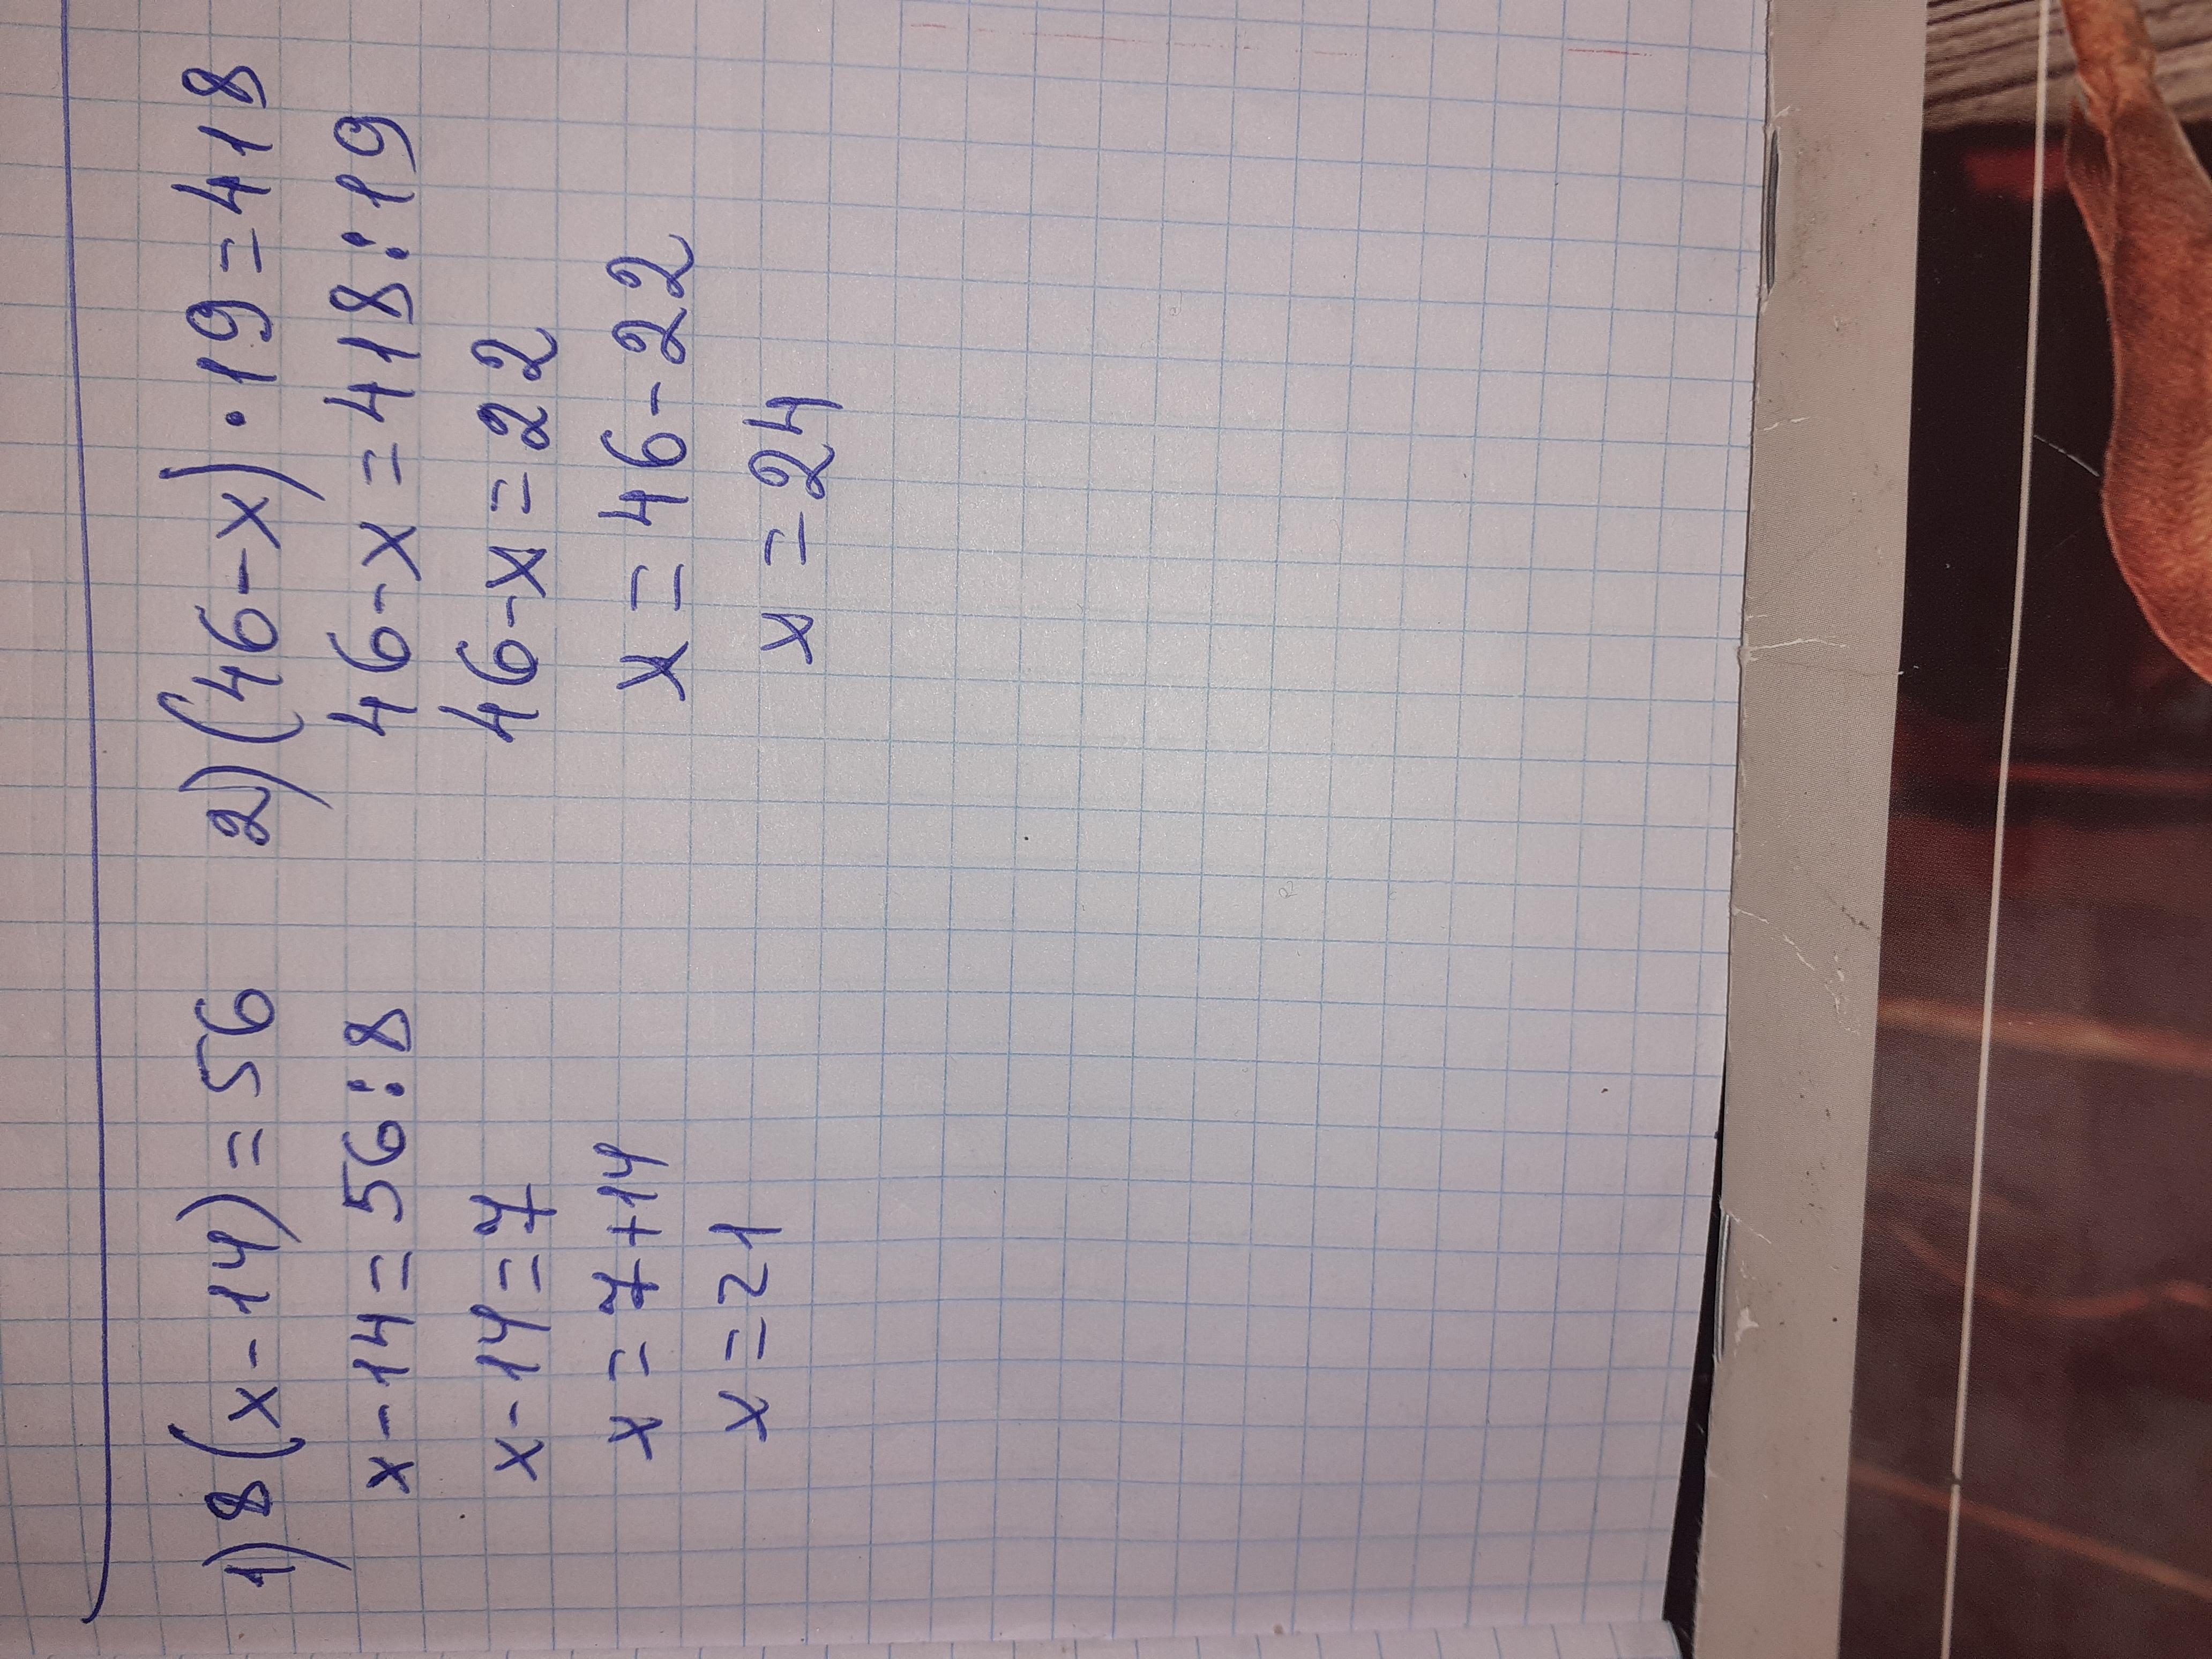 1) 8(x-14)=56
x-14=56:8
x-14=7
x=7+14
x=21
2) (46-x)·19=418
46-x=418:19
46-x=22
x=46-22
x=24